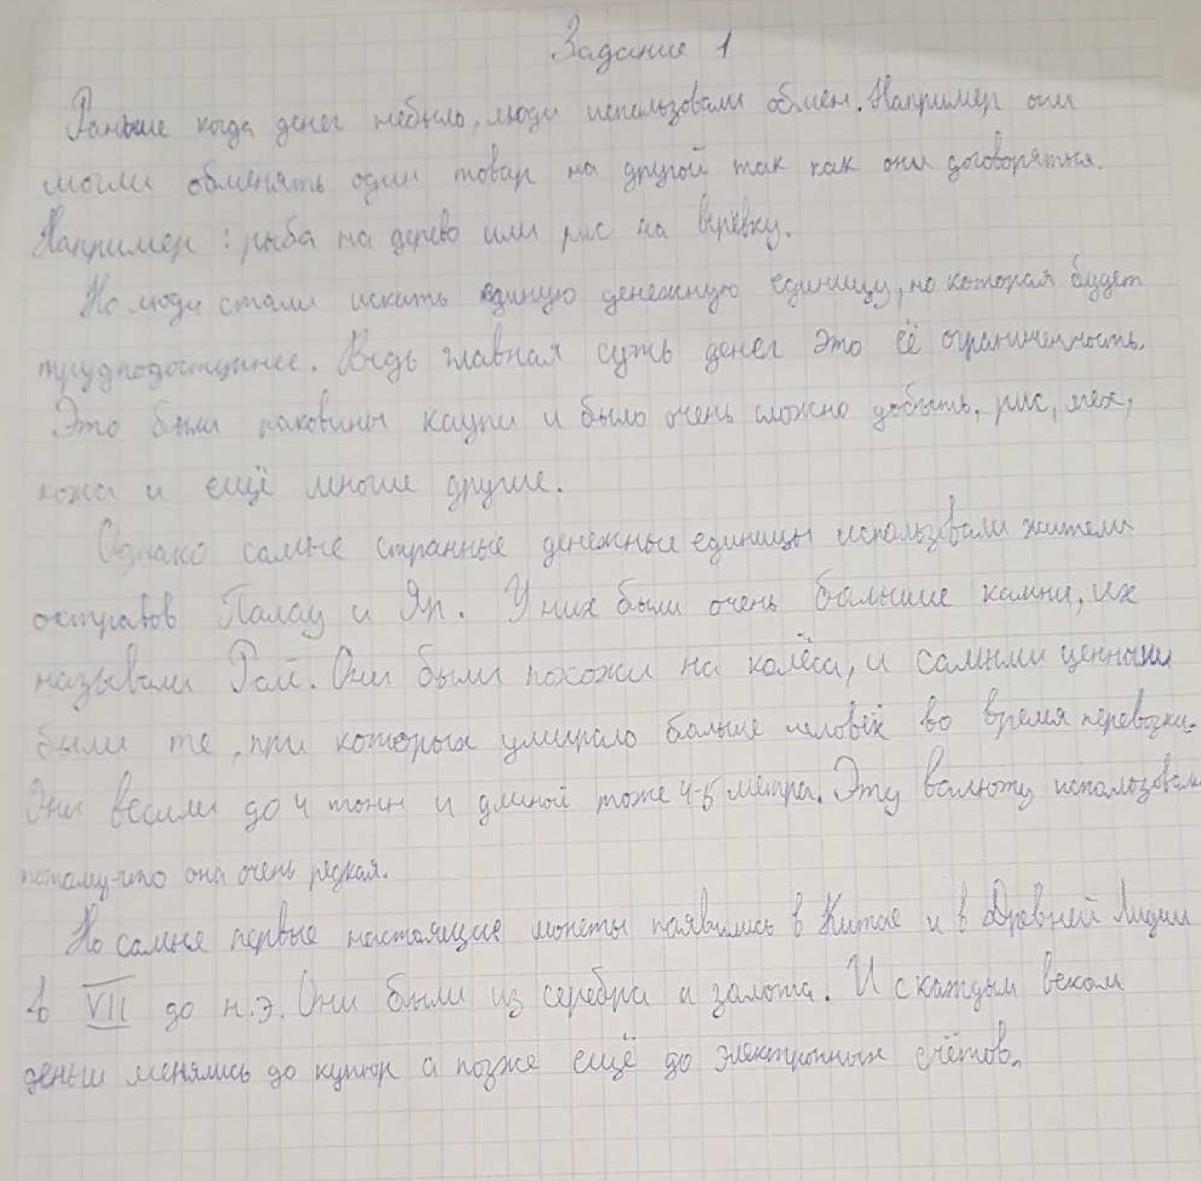 Задание 1
Раньше когда денег небыло, люди использовали обмен. Например они
могли обменять один товар на другой так как они договоряться.
Например: рыба на дерево или рис на верёвку.
Но люди стали искать единую денежную единицу, но которая будет
труднодоступнее. Ведь главная суть денег это её ограниченность.
Это были раковины каури и было очень сложно добыть, рис, мех,
кожа и ещё многие другие.
Однако самые странные денежные единицы использовали жители
островов Палау и Яп. У них были очень большие камни, их
называли Рай. Они были похожи на колёса, и самыми ценными
были те, при которых умирало больше человек во время перевозки.
Они весили до 4 тонн и длиной тоже 4-5 метра. Эту валюту использовали
потому-что она очень редкая.
Но самые первые настоящие монеты паявились в Китае и в Древней Лидии
в VII до н.э. Они были из серебра и золота. И с каждым веком
деньги менялись до купюр а позже ещё до электронных счётов.